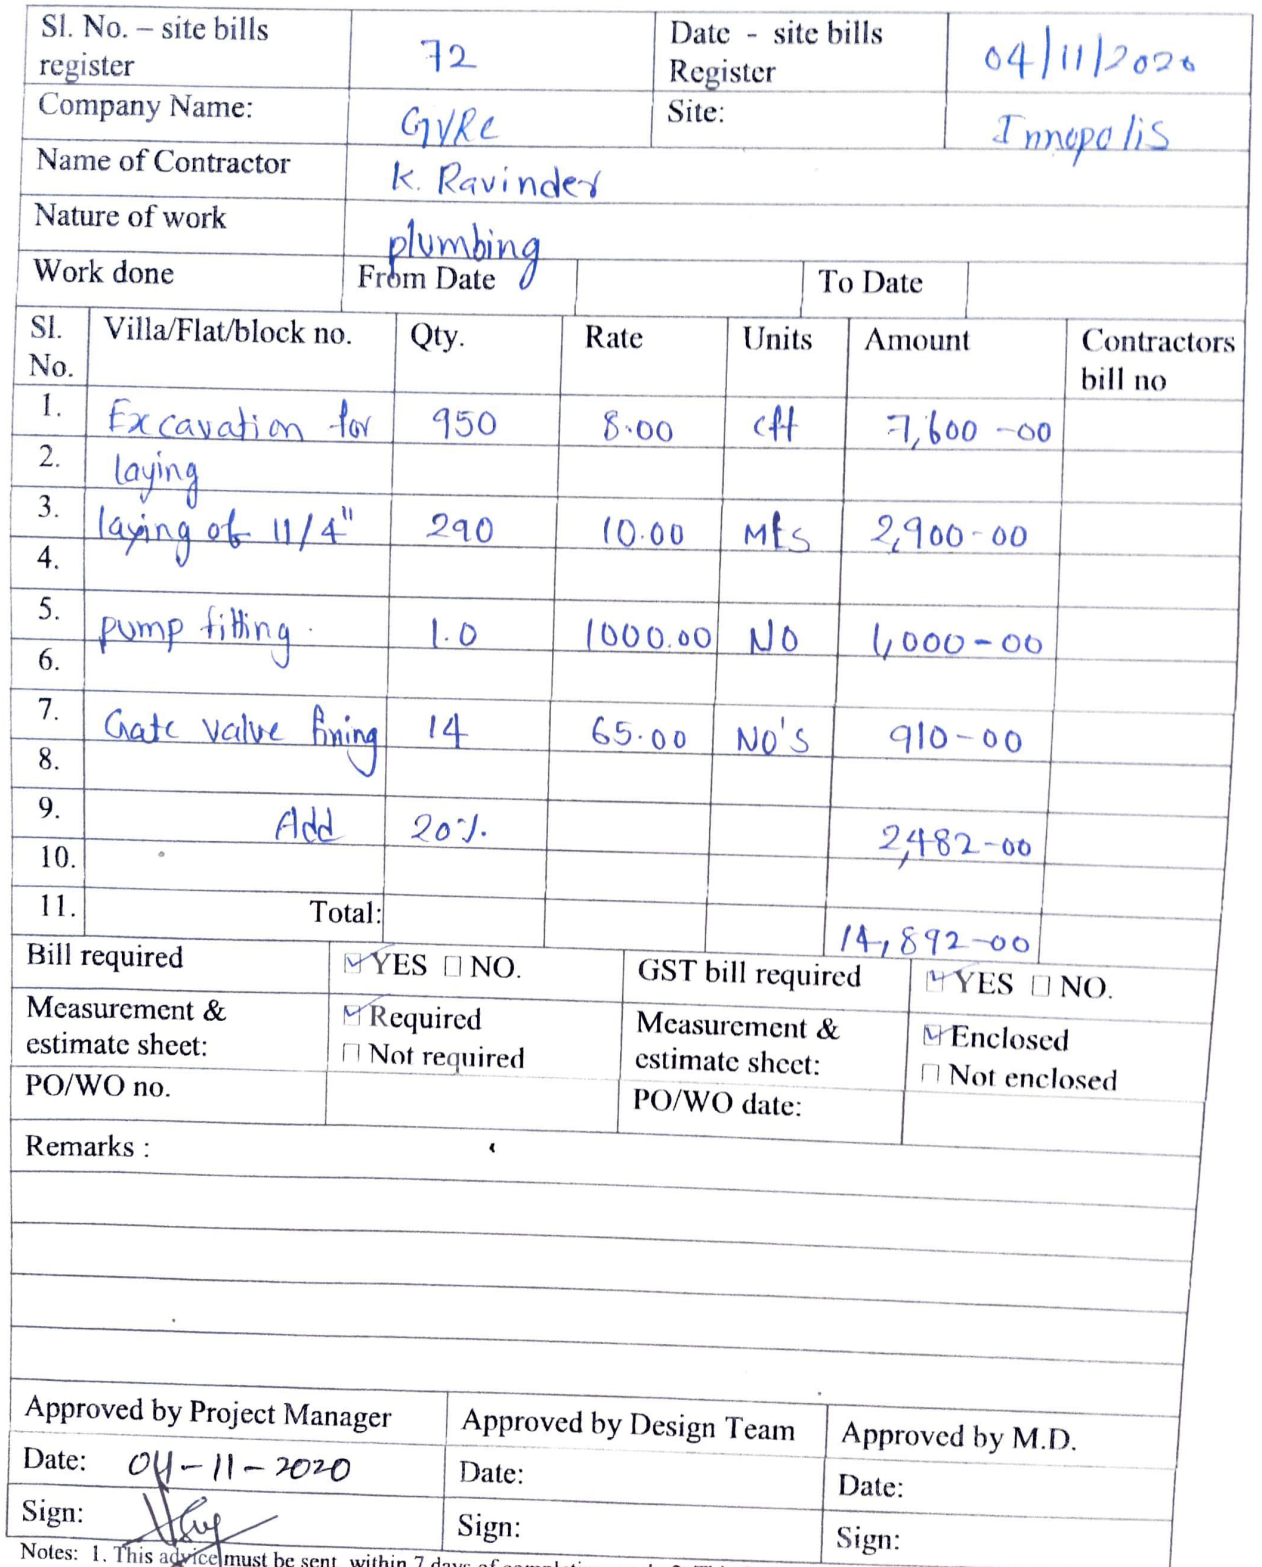 Sl. No. – site bills register 72 Date - site bills Register 04/11/2020
Company Name: GVRC Site: Innopolis
Name of Contractor K. Ravinder
Nature of work plumbing
Work done From Date To Date
Sl. No. Villa/Flat/block no. Qty. Rate Units Amount Contractors bill no
1. Excavation for 950 8.00 cft 7,600-00
2. laying
3. laying of 11/4" 290 10.00 Mts 2,900-00
4.
5. pump fitting. 1.0 1000.00 No 1,000-00
6.
7. Gate valve fining 14 65.00 No's 910-00
8.
9. Add 20% 2,482-00
10.
11. Total: 14,892-00
Bill required ☑ YES ☐ NO. GST bill required ☑ YES ☐ NO.
Measurement & estimate sheet: ☑ Required ☐ Not required Measurement & estimate sheet: ☑ Enclosed ☐ Not enclosed
PO/WO no. PO/WO date:
Remarks :
Approved by Project Manager Approved by Design Team Approved by M.D.
Date: 04-11-2020 Date: Date:
Sign: Sign: Sign:
Notes: 1. This advice must be sent within 7 days of